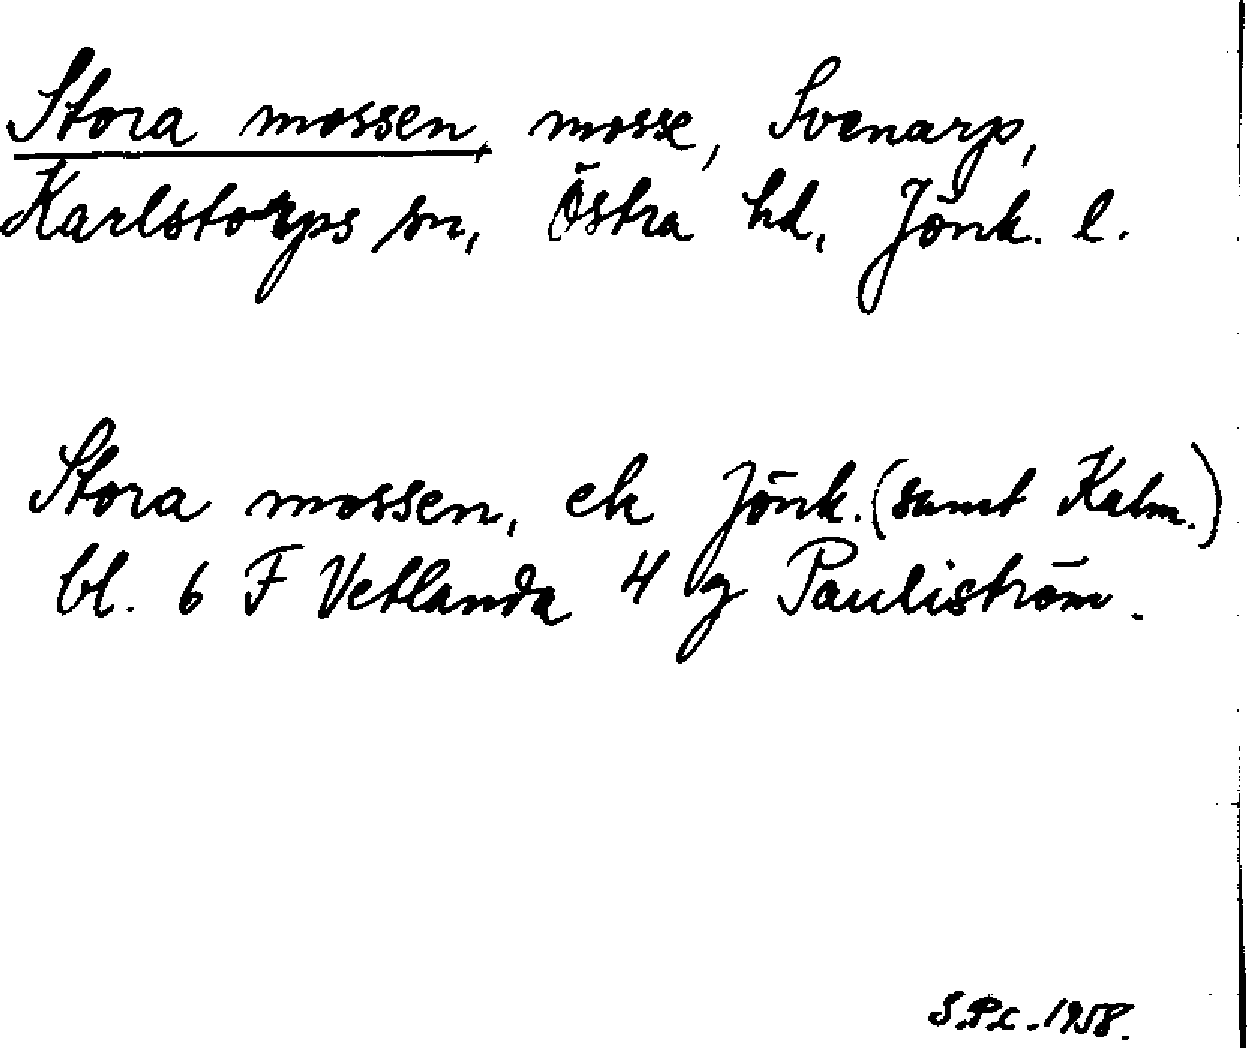 Stora mossen, mosse, Svenarp,
Karlstorps sn, Östra hd, Jönk. l.
Stora mossen, ek Jönk. (samt Kalm.)
bl. 6 F Vetlanda 4 g Pauliström.
S.P.c. 1958.